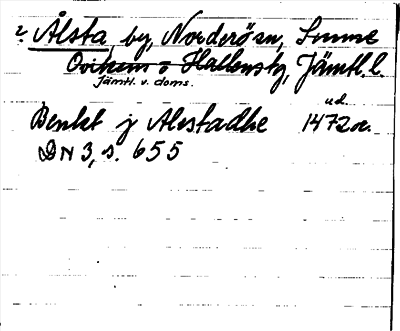 2. Ålsta, by, Norderön, Sunne
Ovikens o Hallens tg, Jämtl. l.
Jämtl. v. doms.
Benkt j Alestadhe 1472 u.d.
DN 3, s. 655